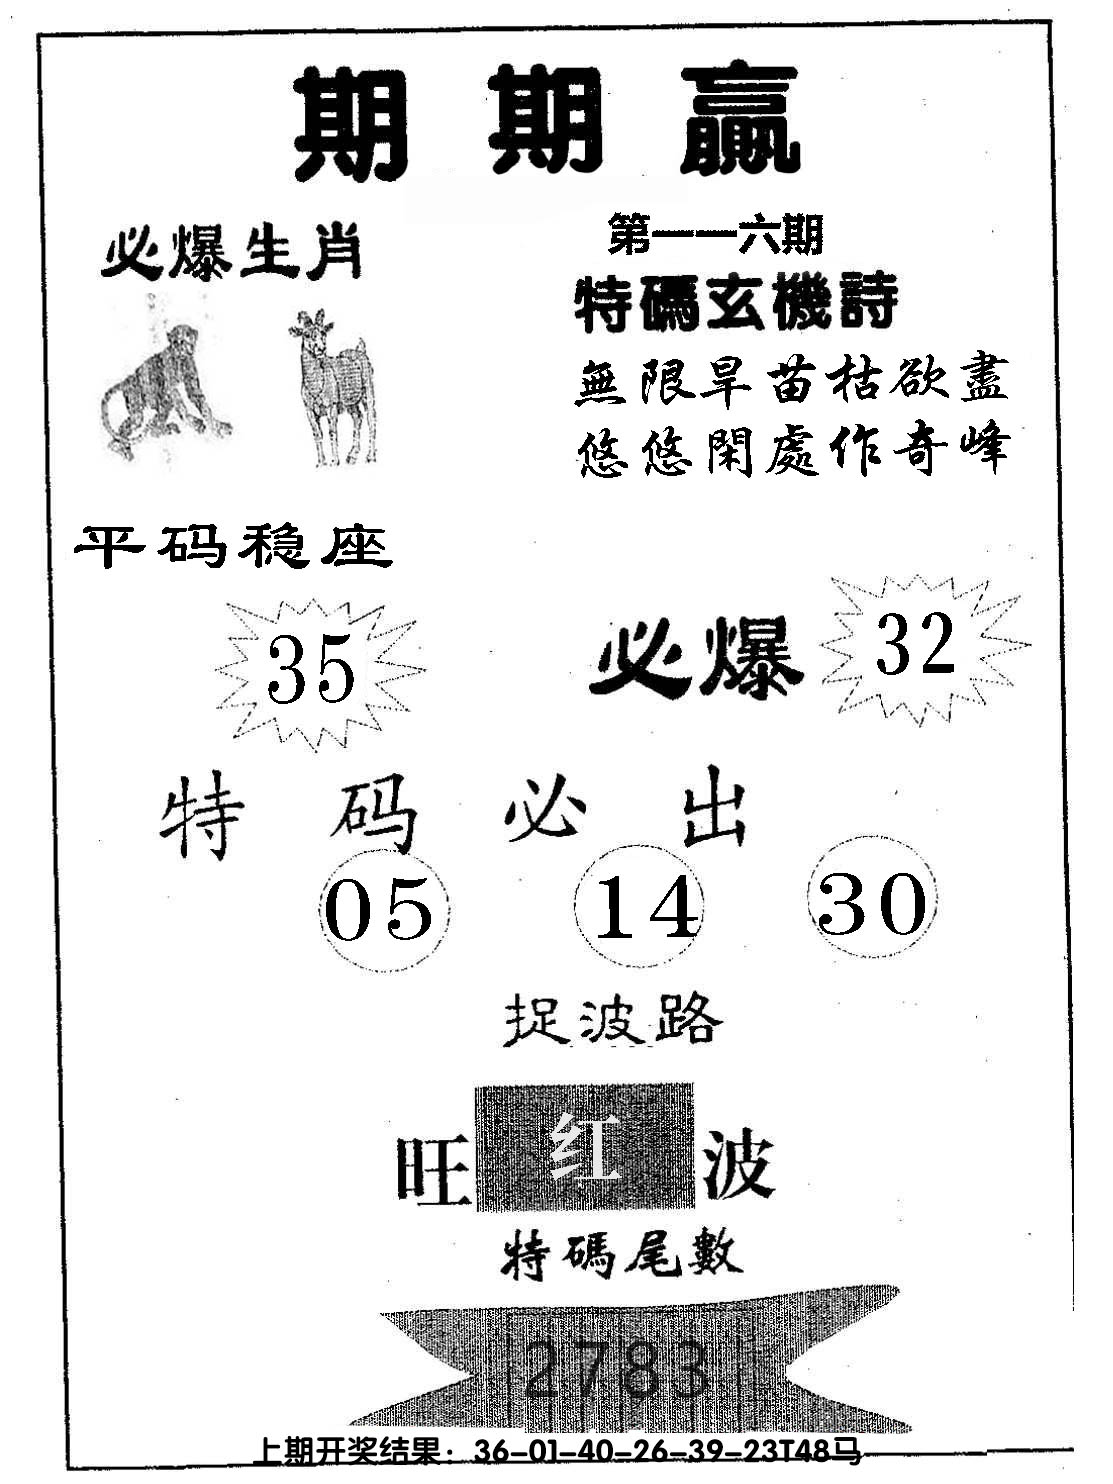 期期贏
必爆生肖
第一一六期
特碼玄機詩
無限旱苗枯欲盡
悠悠閑處作奇峰
平码稳座
35
必爆 32
特码必出
05 14 30
捉波路
旺红波
特碼尾數
2783
上期开奖结果：36-01-40-26-39-23T48马